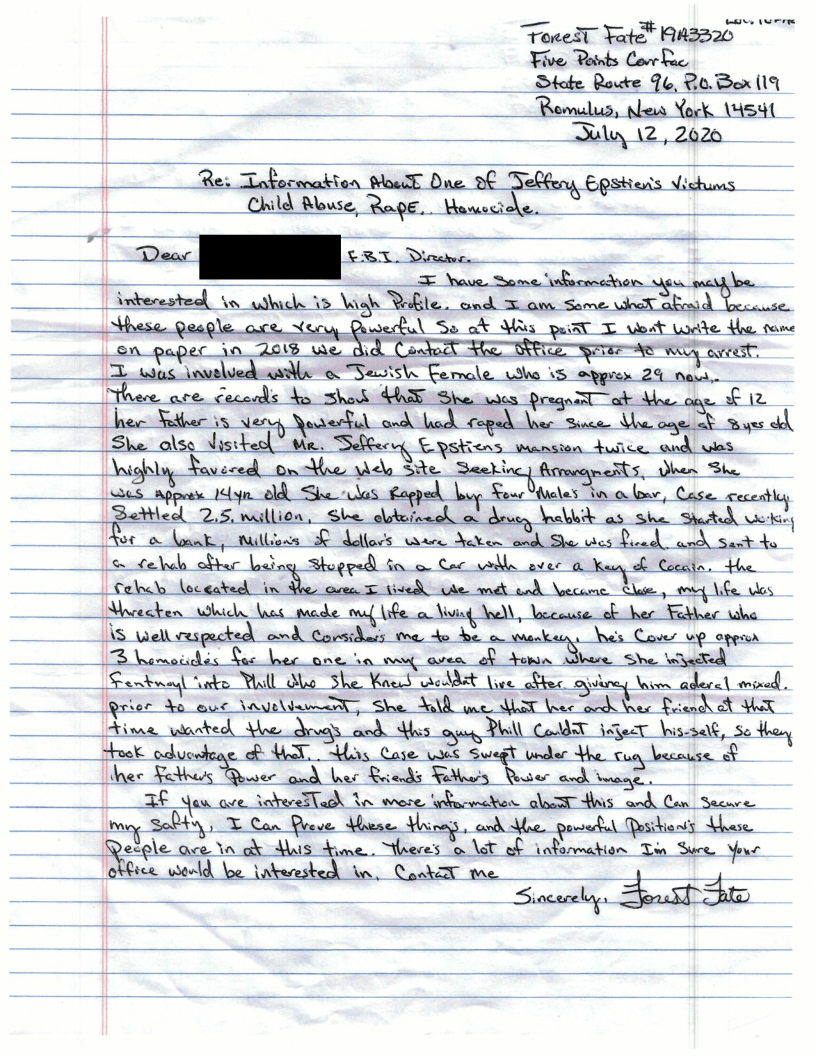 Forest Fate # 19A3320
Five Points Corr fac
State Route 96, P.O. Box 119
Romulus, New York 14541
July 12, 2020
Re: Information About One of Jeffery Epstien's Victums
Child Abuse, Rape, Homocide.
Dear F.B.I. Director.
I have some information you may be
interested in which is high Profile. and I am some what afraid because
these people are very powerful So at this point I wont write the name
on paper in 2018 we did Contact the office prior to my arrest.
I was involved with a Jewish Female who is approx 29 now.
There are records to show that she was pregnent at the age of 12
her Father is very powerful and had raped her since the age of 8 yes old
She also visited Mr. Jeffery Epstiens mansion twice and was
highly favored on the web site Seeking Arrangments, when She
was Approx 14yr old She was Rapped by four Males in a bar, Case recently
Settled 2.5. million, She obtained a drug habbit as she started working
for a bank, Million's of dollar's were taken and She was fired and sent to
a rehab after being stopped in a Car with over a Key of Cocain. the
rehab loceated in the area I lived we met and became close, my life was
threaten which has made my life a living hell, because of her Father who
is well respected and Consider's me to be a monkey, he's Cover up approx
3 homocides for her one in my area of town where She injected
Fentnayl into Phill who She Knew wouldnt live after giving him aderal mixed.
prior to our involvement, She told me that her and her friend at that
time wanted the drug's and this guy Phill Couldnt inject his-self, so they
took advantage of that.. this Case was swept under the rug because of
her Father's Power and her friend's Father's Power and image.
If you are interesTed in more information about this and Can Secure
my Safty, I Can Prove these thing's, and the powerful Position's these
People are in at this time. There's a lot of information I'm Sure your
office would be interested in, Contact me
Sincerely, Forest Fate